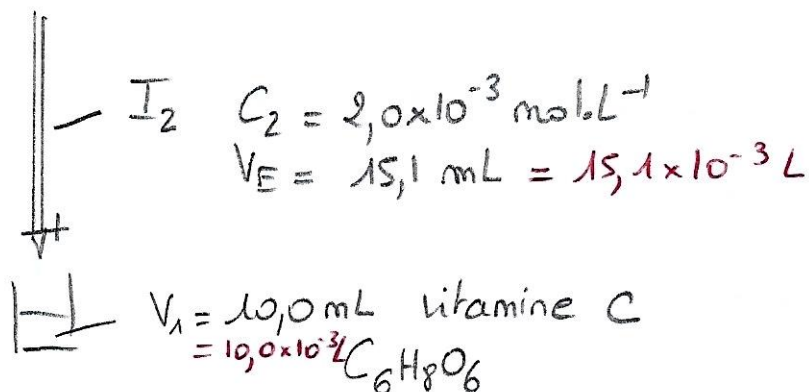 I₂ C₂ = 2,0×10⁻³ mol.L⁻¹
V_E = 15,1 mL = 15,1×10⁻³ L
V₁ = 10,0 mL vitamine C
= 10,0×10⁻³L C₆H₈O₆